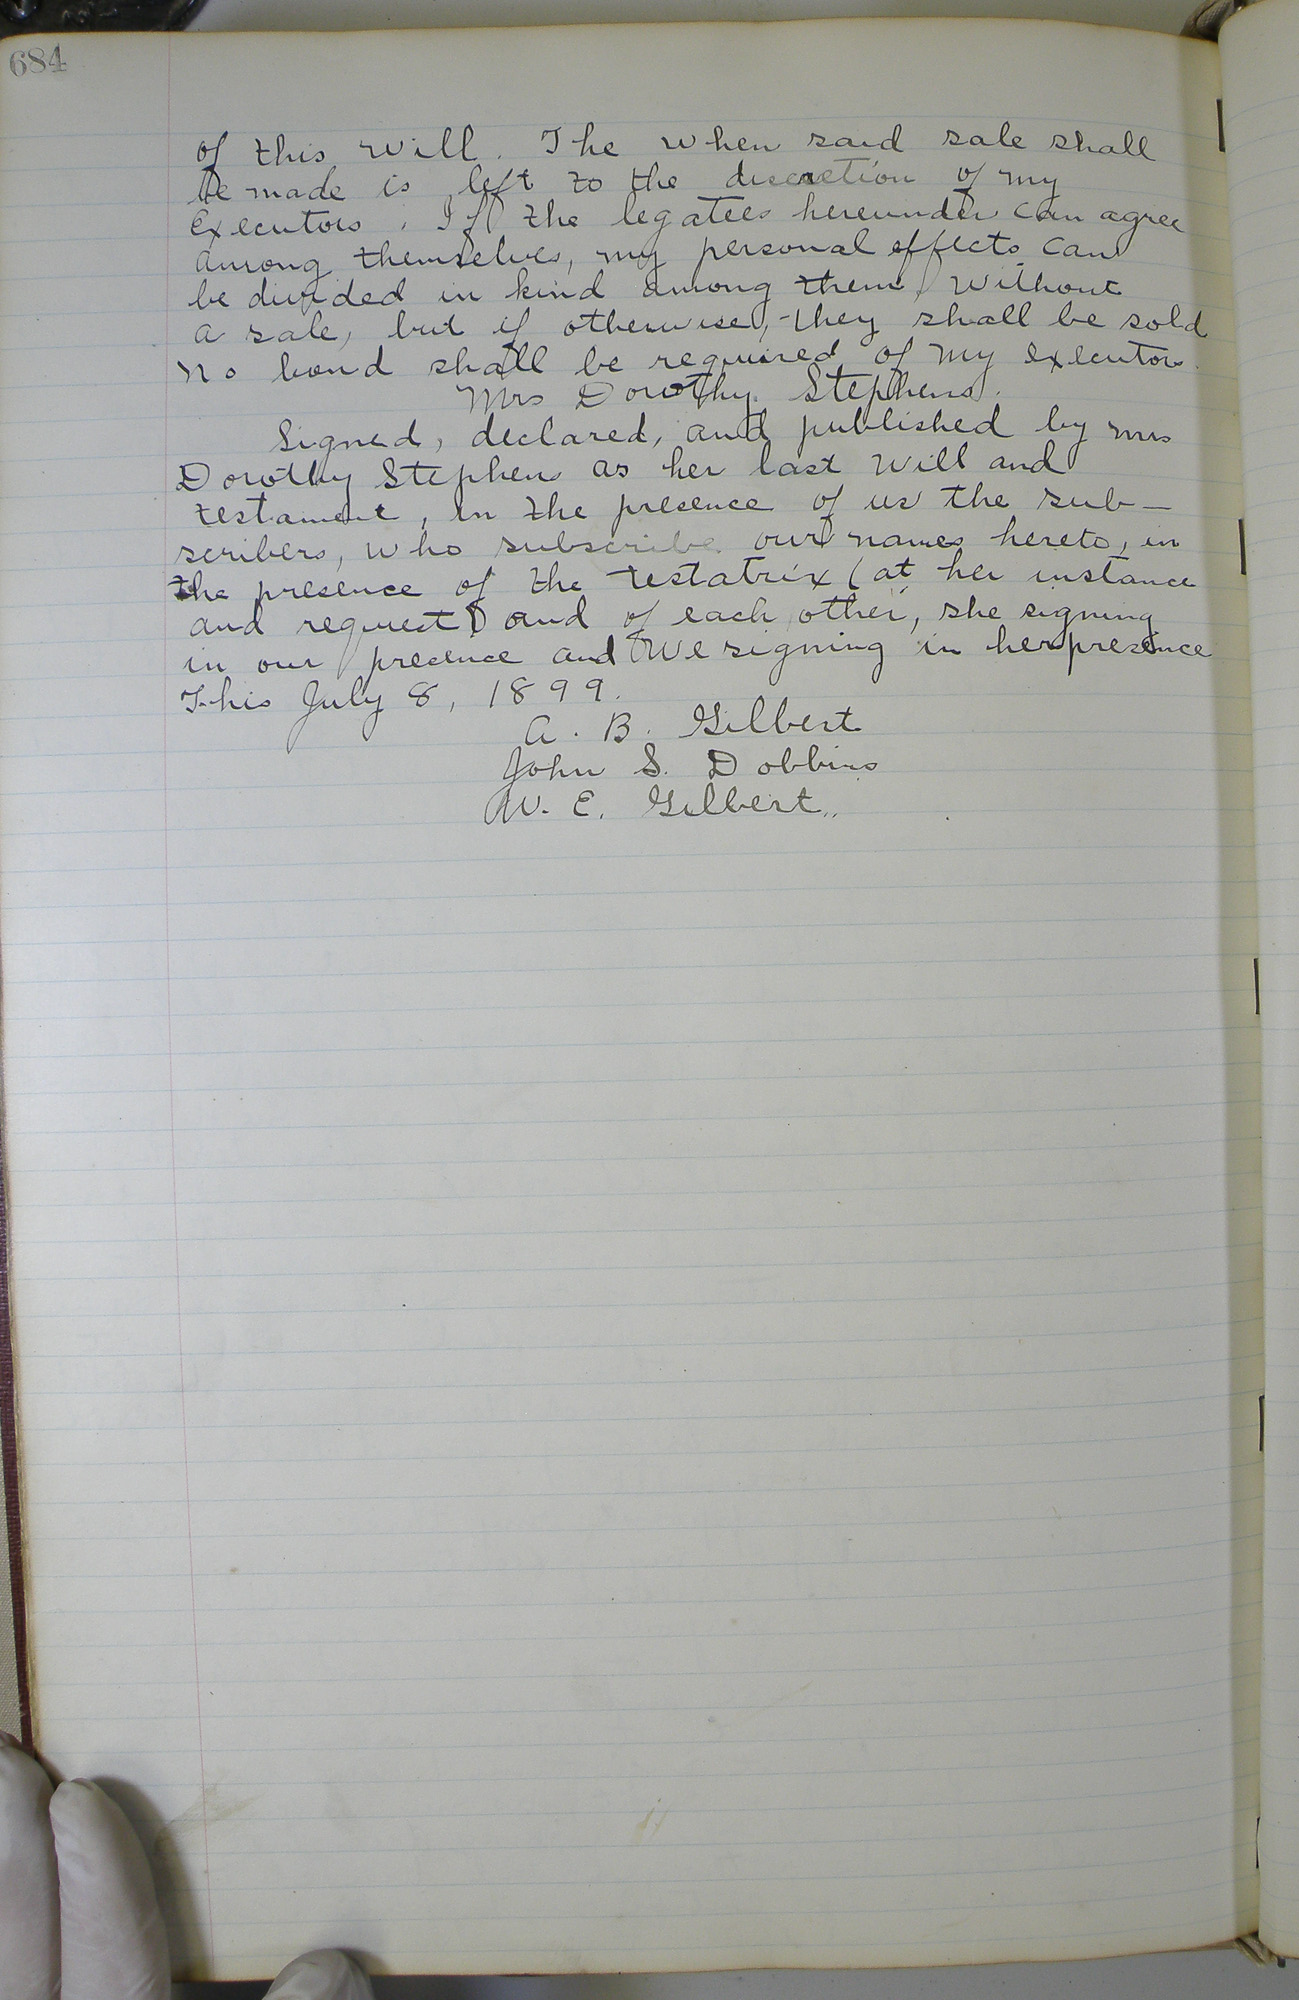 684
of this Will. The when said sale shall
be made is left to the discretion of my
Executors. If the legatees hereunder can agree
among themselves, my personal effects can
be divided in kind among them, without
a sale, but if otherwise, they shall be sold
No bond shall be required of my executors.
Mrs Dorothy Stephens.
Signed, declared, and published by Mrs
Dorothy Stephens as her last Will and
testament, in the presence of us the sub-
scribers, who subscribe our names hereto, in
the presence of the testatrix (at her instance
and request) and of each other, she signing
in our presence and we signing in her presence
This July 8, 1899.
A. B. Gilbert
John S. Dobbins
W. E. Gilbert.